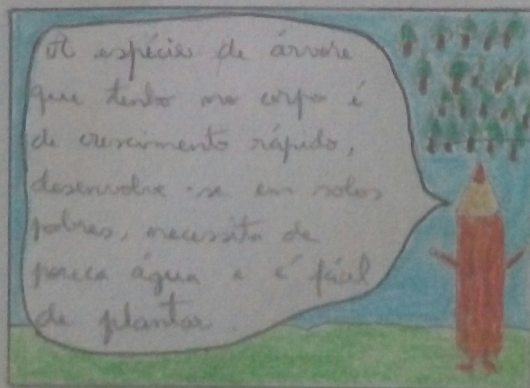 A espécie de árvore
que tenho no corpo é
de crescimento rápido,
desenvolve-se em solos
pobres, necessita de
pouca água e é fácil
de plantar